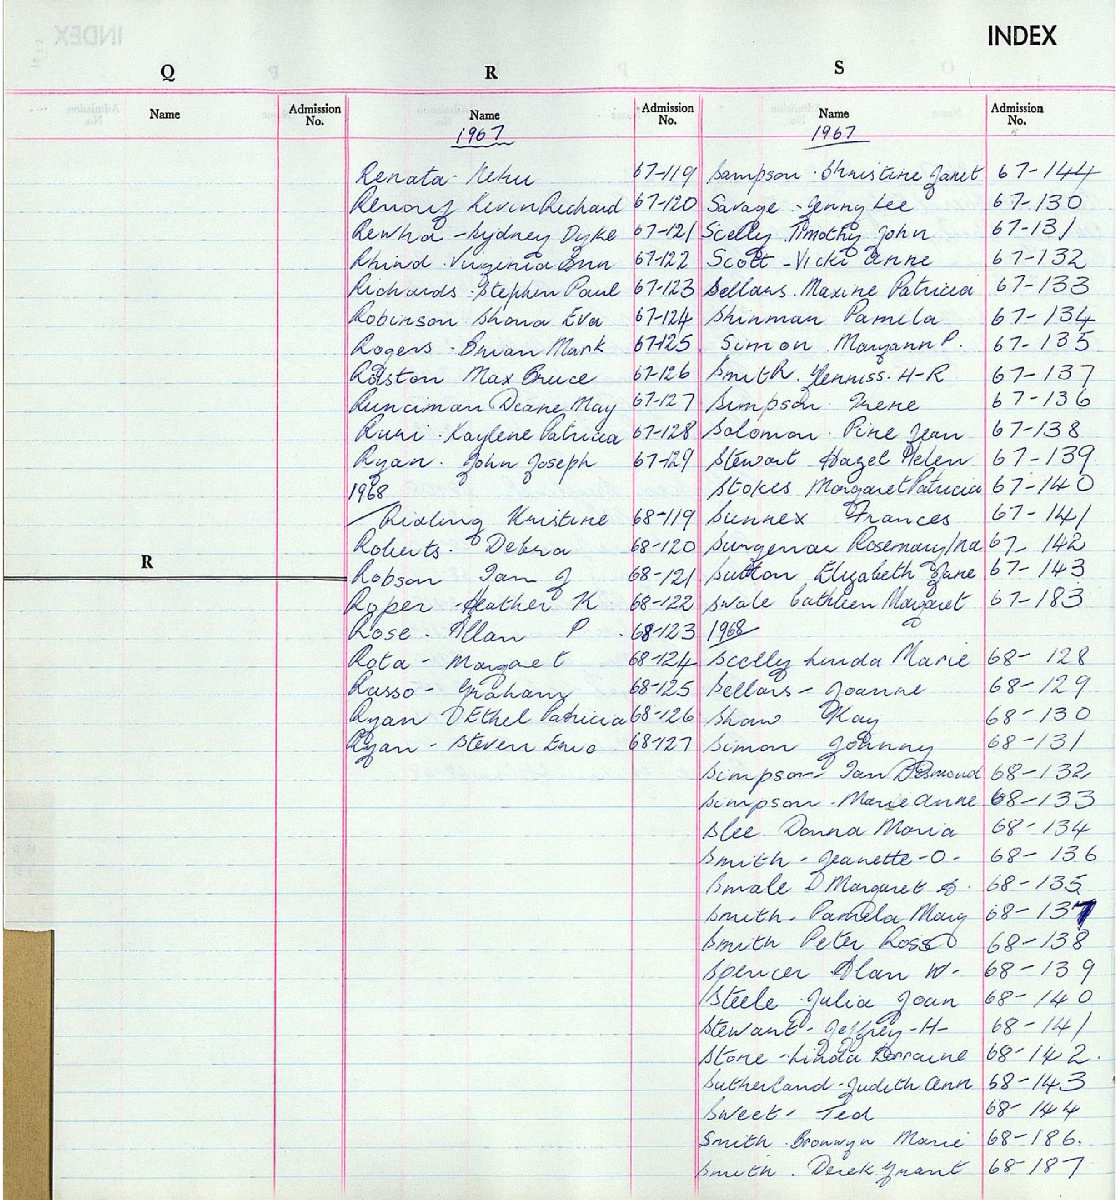 INDEX
Q
Name
Admission No.
R
R
Name
Admission No.
1967
Renata - Neku 67-119
Renouf Kevin Richard 67-120
Rewha - Sydney Dyke 67-121
Rhind - Virginia Ann 67-122
Richards - Stephen Paul 67-123
Robinson Shona Eva 67-124
Rogers - Brian Mark 67-125
Ralston Max Bruce 67-126
Runciman Diane May 67-127
Ruri - Kaylene Patricia 67-128
Ryan - John Joseph 67-129
1968
Ridling Kristine 68-119
Roberts - Debra 68-120
Robson Ian J 68-121
Roper - Heather K 68-122
Rose - Allan P. 68-123
Rota - Margaret 68-124
Russo - Graham 68-125
Ryan D Ethel Patricia 68-126
Ryan - Steven 68-127
S
Name
Admission No.
1967
Sampson - Christine Janet 67-144
Savage - Jenny Lee 67-130
Scelly Timothy John 67-131
Scott - Vicki Anne 67-132
Sellars - Maxine Patricia 67-133
Shinman Pamela 67-134
Simon Maryann P. 67-135
Smith - Glenniss - H-R 67-137
Simpson Irene 67-136
Solomon - Pine Jean 67-138
Stewart Hazel Helen 67-139
Stokes Margaret Patricia 67-140
Sunnex Frances 67-141
Surgenor Rosemary Ina 67-142
Sutton Elizabeth Jane 67-143
Swale Cathleen Margaret 67-183
1968
Scelly Linda Marie 68-128
Sellars - Joanne 68-129
Shaw Kay 68-130
Simon Johnny 68-131
Simpson - Ian Desmond 68-132
Simpson - Marie Anne 68-133
Slee Donna Maria 68-134
Smith - Jeanette - O - 68-136
Smale D Margaret 68-135
Smith - Pamela Mary 68-137
Smith Peter Ross 68-138
Spencer Alan W - 68-139
Steele - Julia Joan 68-140
Stewart - Jeffrey - H - 68-141
Stone - Linda Lorraine 68-142.
Sutherland - Judith Ann 68-143
Sweet - Ted 68-144
Smith - Bronwyn Marie 68-186.
Smith - Derek Grant 68-187